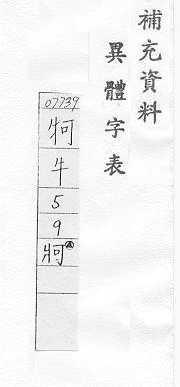 補充資料
異體字表
07739
牱
牛
5
9
牁